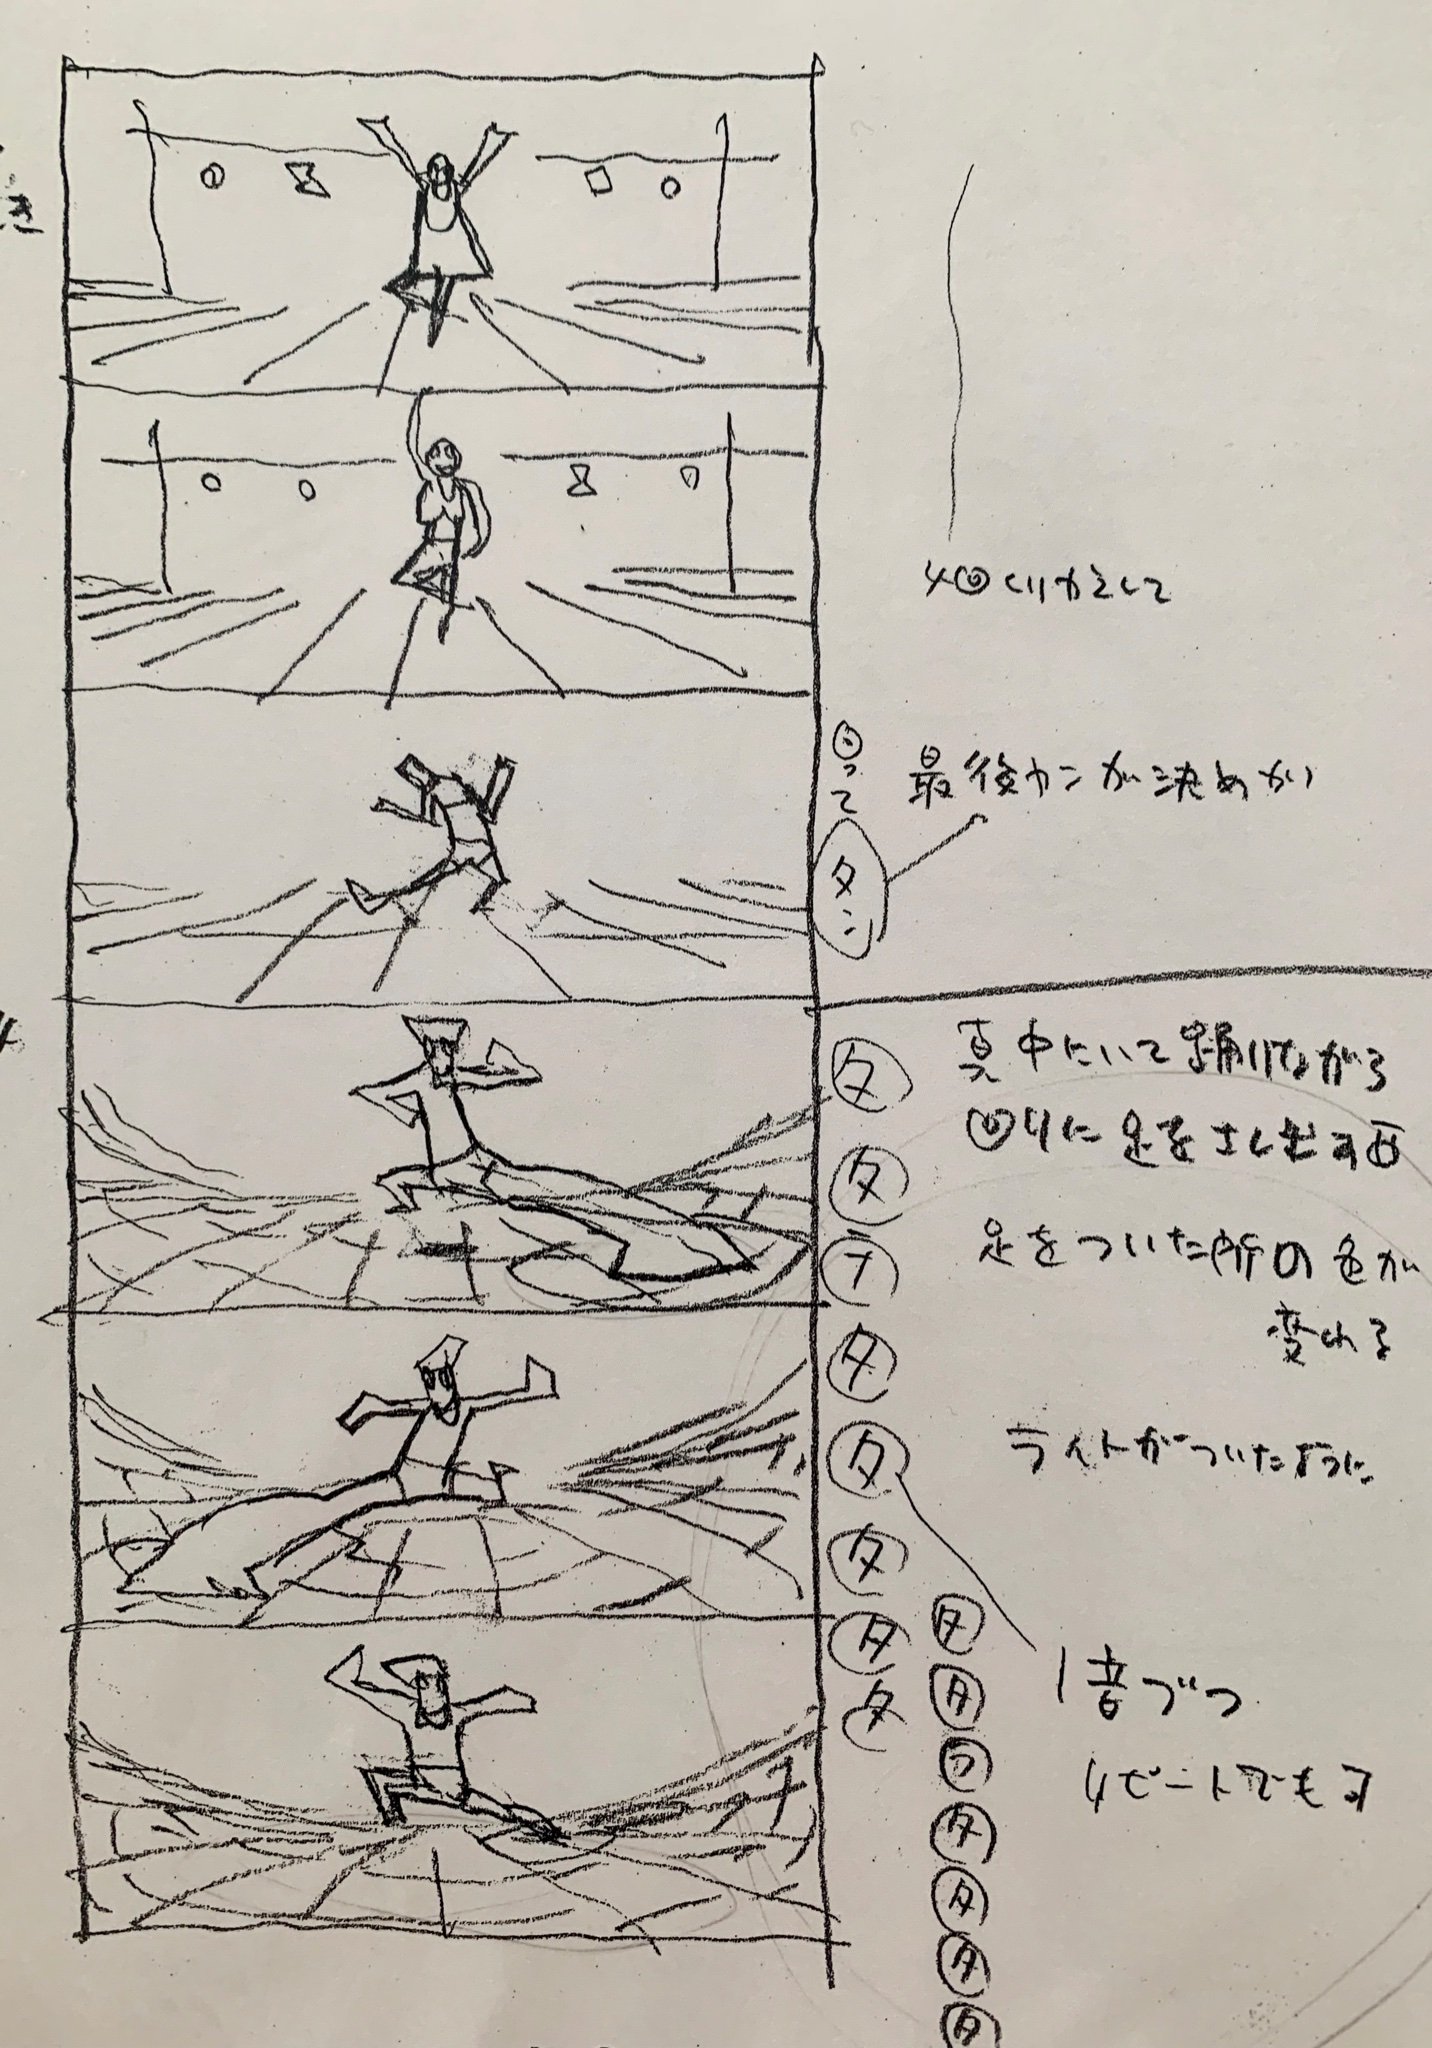 き
4回くりかえして
回って
最後カンが決めがい
タン
4
真中にいて踊りながら
回りに足をさし出す
足をついた所の色が
変わる
ライトがついたように
タ
タ
タ
タ
タ
タ
タ
タ
タ
タ
タ
タ
タ
タ
1音づつ
4ビートでも可